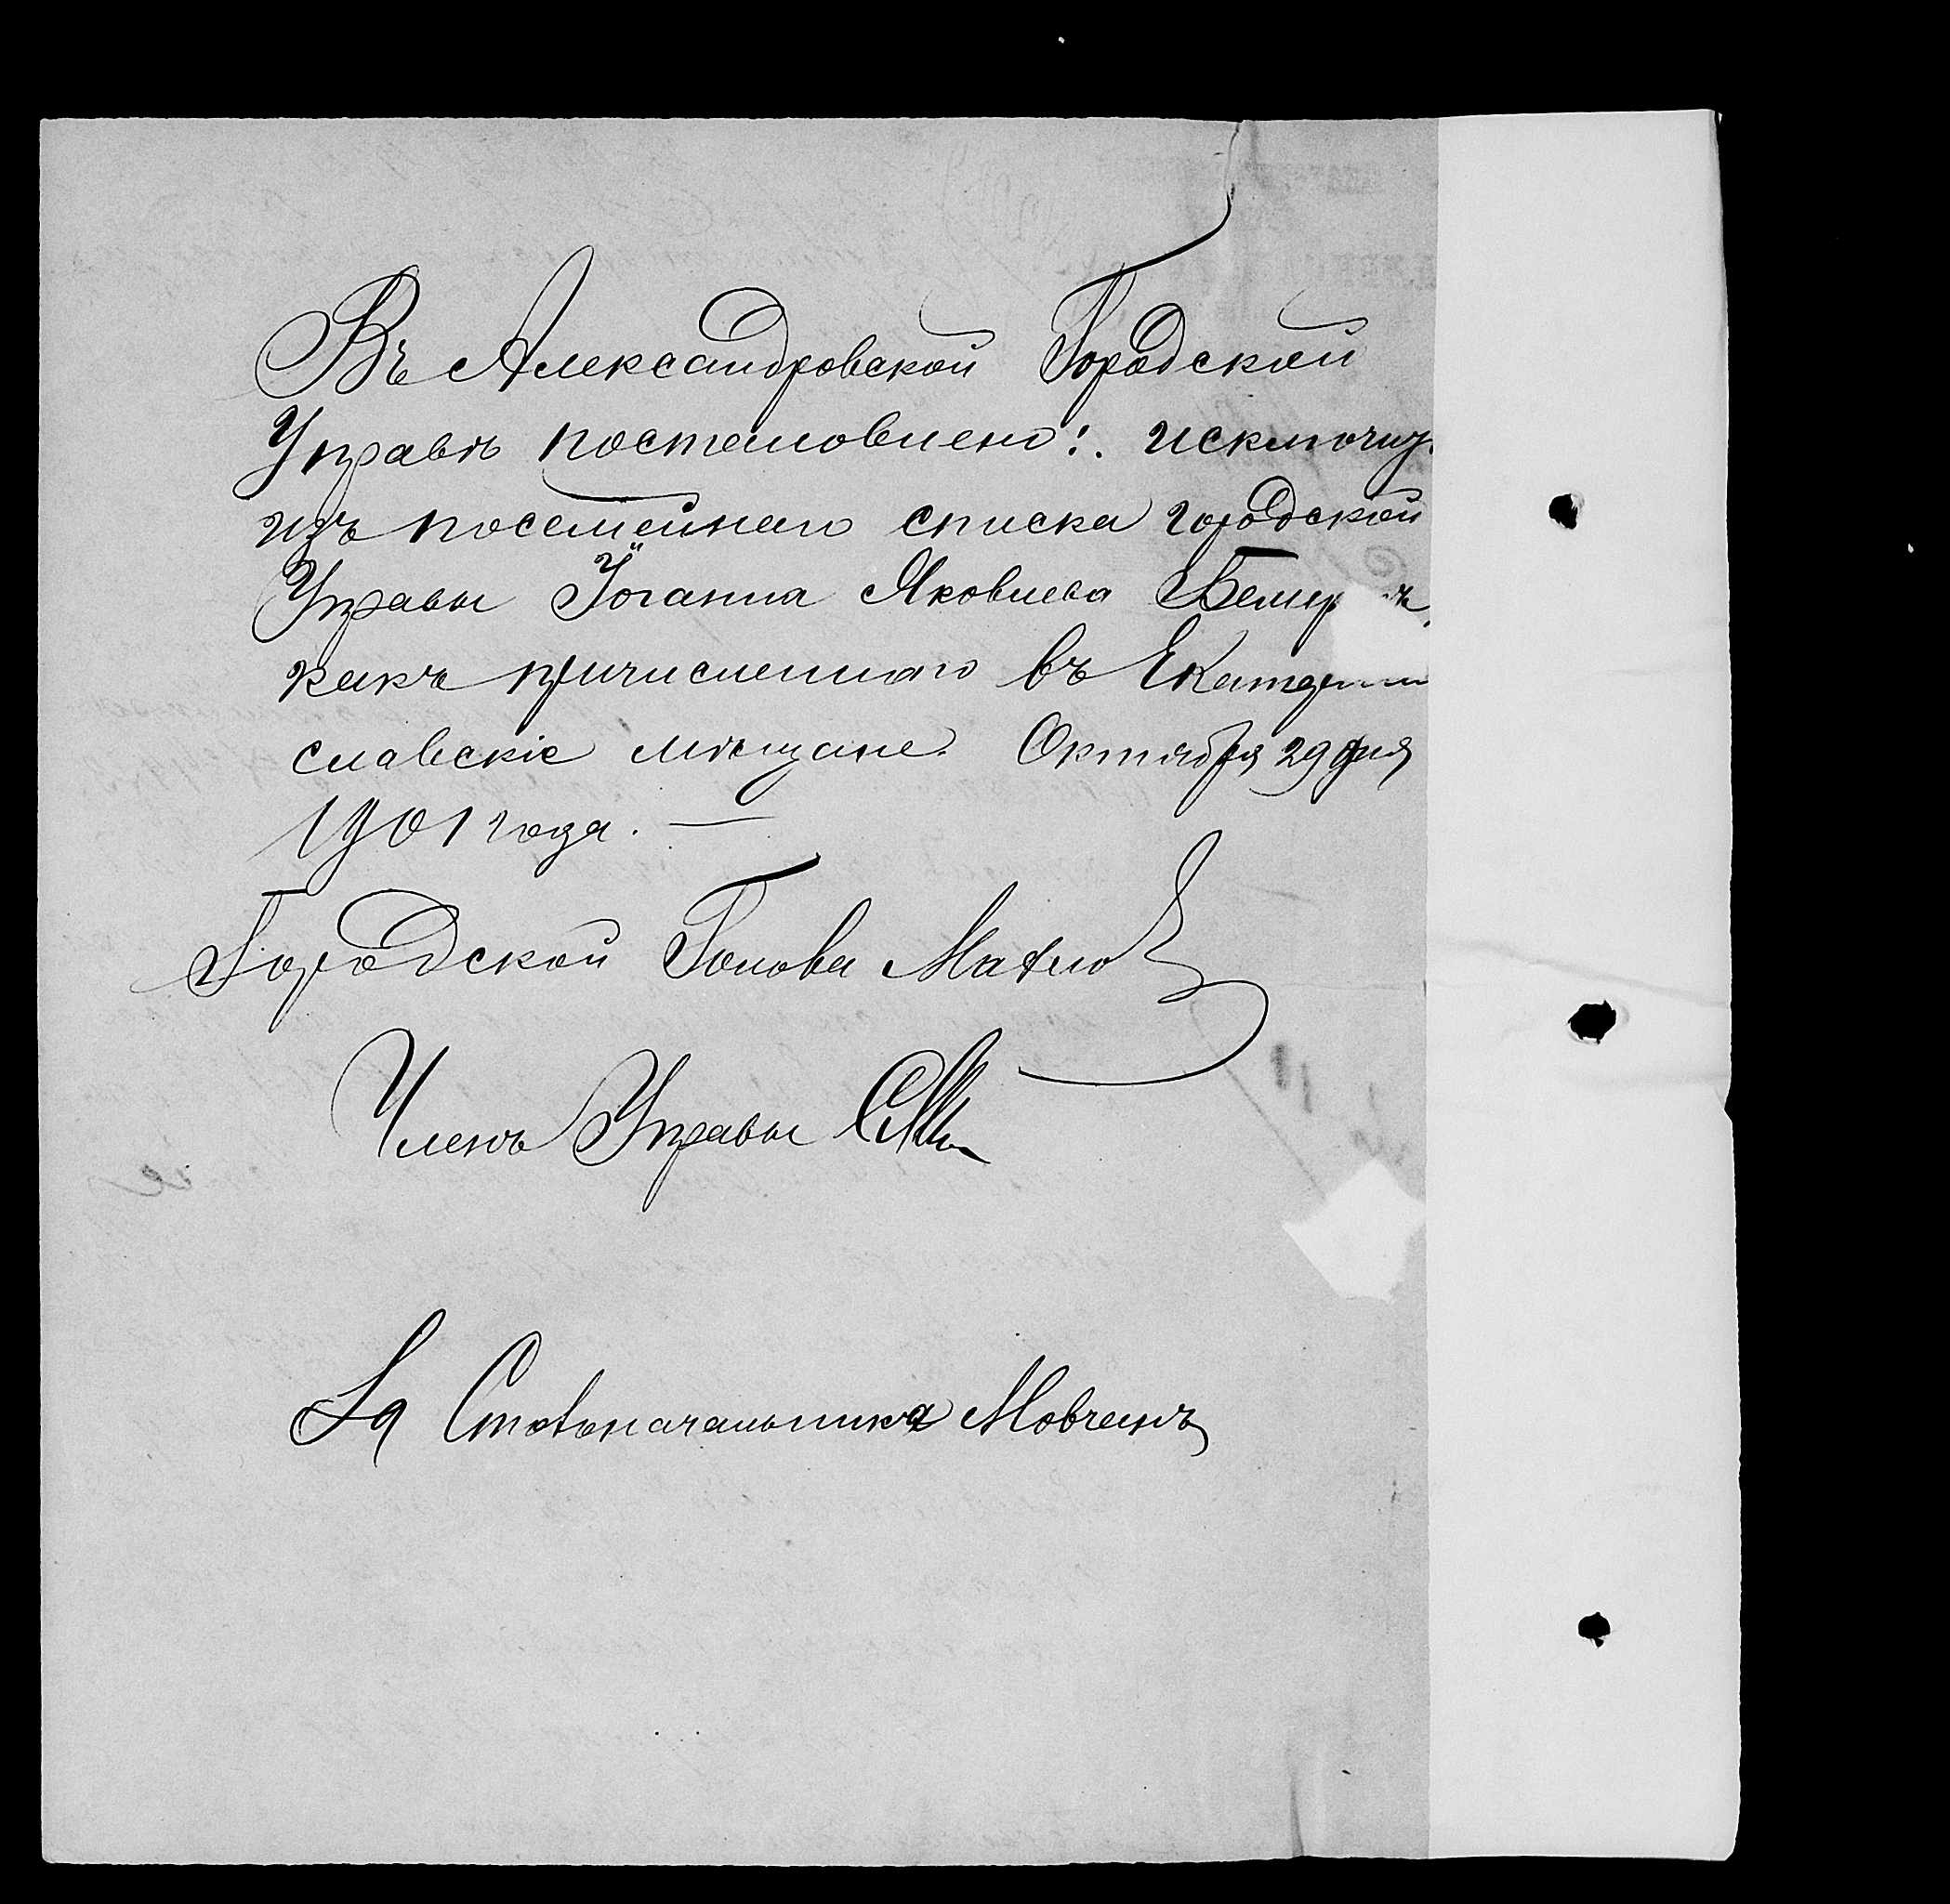 Въ Александровской Городской
Управѣ постановлено: исключи
изъ посемейнаго списка городской
Управы Іоганна Яковлева
какъ причисленнаго въ Екатерино
славскіе мѣщане. Октября 29 дня
1901 года. —
Городской Голова
Членъ Управы
За Столоначальника Мовчанъ